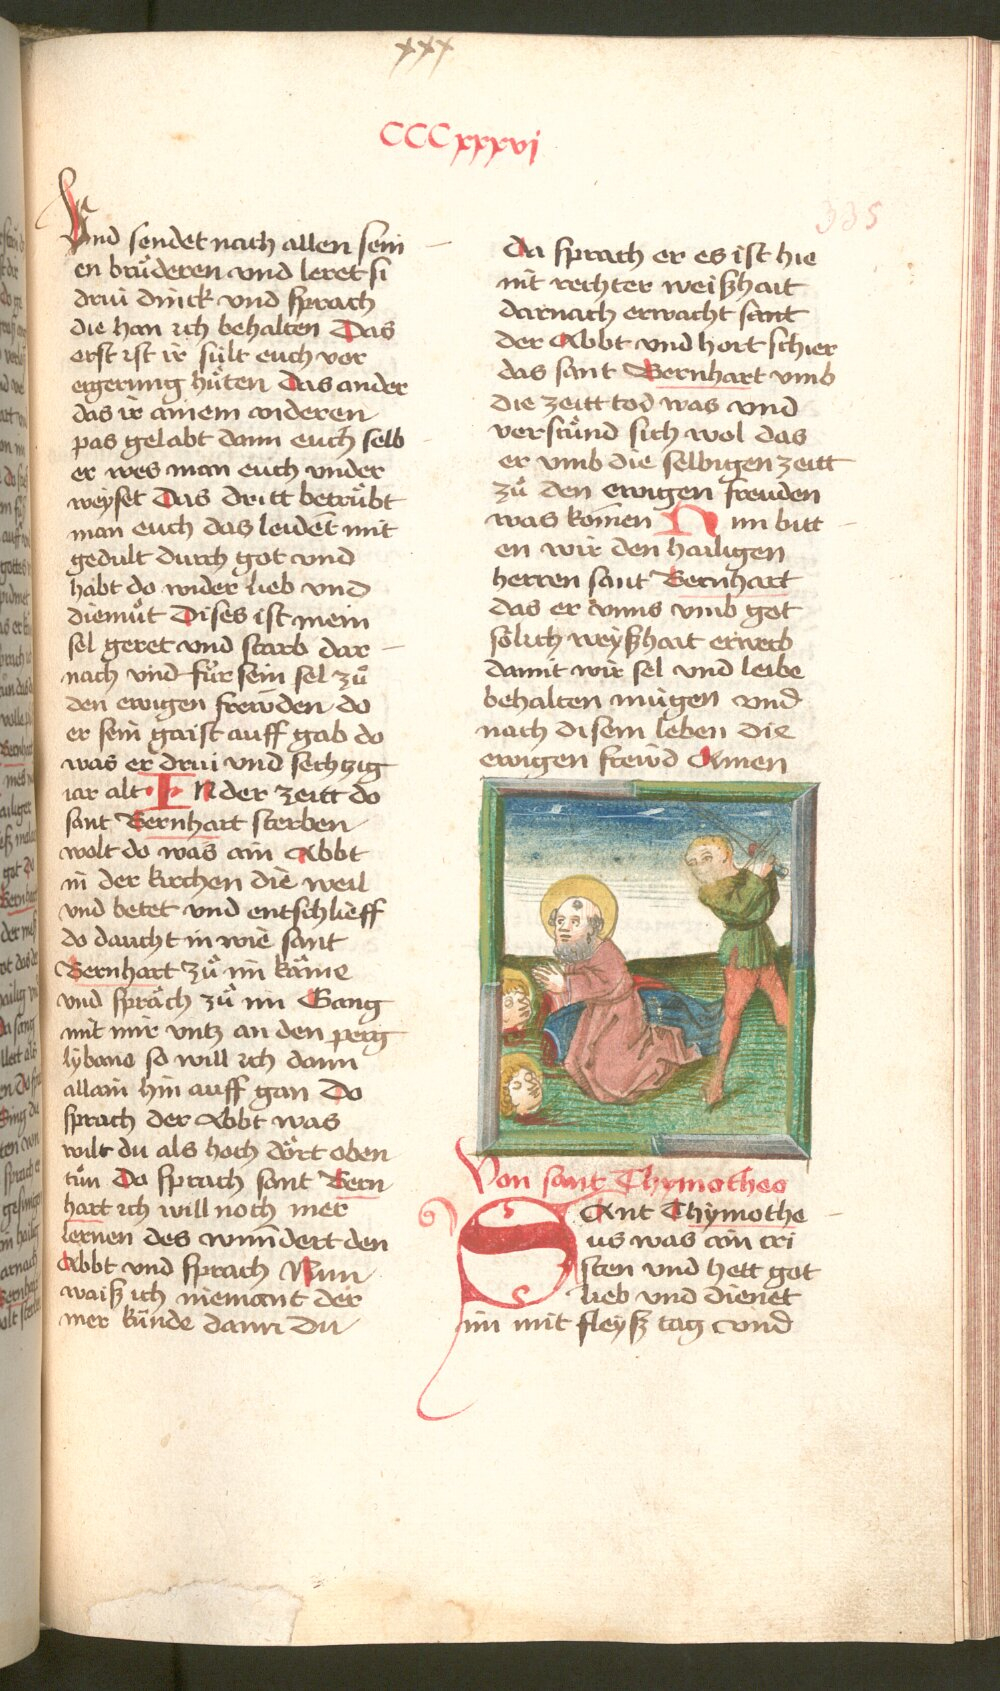 xxx
CCCxxxvj
335
Vnd sendet nach allen sein
en brůderen vnd leret si
drui dinck vnd sprach
die han ich behalten Das
erst ist ir sült euch vor
ergerung hůten Das ander
das ir ainem anderen
pas gelabt dann euch selb
er wes man euch vnder
weyset Das dritt betrůbt
man euch das leidet mit
gedult durch got vnd
habt do wider lieb vnd
diemůt Dises ist mein
sel geret vnd starb dar
nach vnd fůr sein sel zů
den ewigen frewden do
er sein gaist auff gab do
was er drui vnd sechtzig
iar alt In der zeitt do
sant Bernhart sterben
wolt do was ain Abbt
in der kirchen die weil
vnd betet vnd entschlieff
do daucht in wie sant
Bernhart zů im käme
vnd spräch zů im Gang
mit mir vntz an den perg
lybano so will ich dann
allain hin auff gan Do
sprach der Abbt was
wilt du als hoch dört oben
tůn Do sprach sant Bern
hart ich will noch mer
lernen des wundert den
Abbt vnd sprach Nun
waiß ich niemant der
mer künde dann Du
Da sprach er es ist hie
nit rechter weißhait
darnach erwacht sant
der Abbt vnd hort schier
das sant Bernhart vmb
die zeitt tod was vnd
verstůnd sich wol das
er vmb die selbigen zeitt
zů den ewigen freuden
was komen Nun bitt
en wir den hailigen
herren sant Bernhart
das er vnns vmb got
sölich weyßhait erwerb
damit wir sel vnd leibe
behalten mügen vnd
nach disem leben die
ewigen frewd Amen
Von sant Thymotheo
SAnt Thymothe
us was ain cri
sten vnd hett got
lieb vnd dienet
im mit fleyß tag vnd